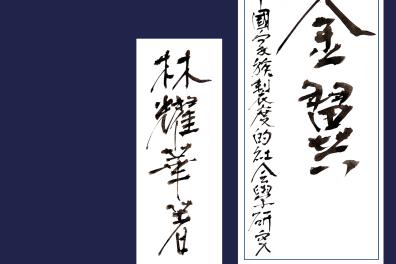 金翼
國家族製度的社会學研究
林耀華著